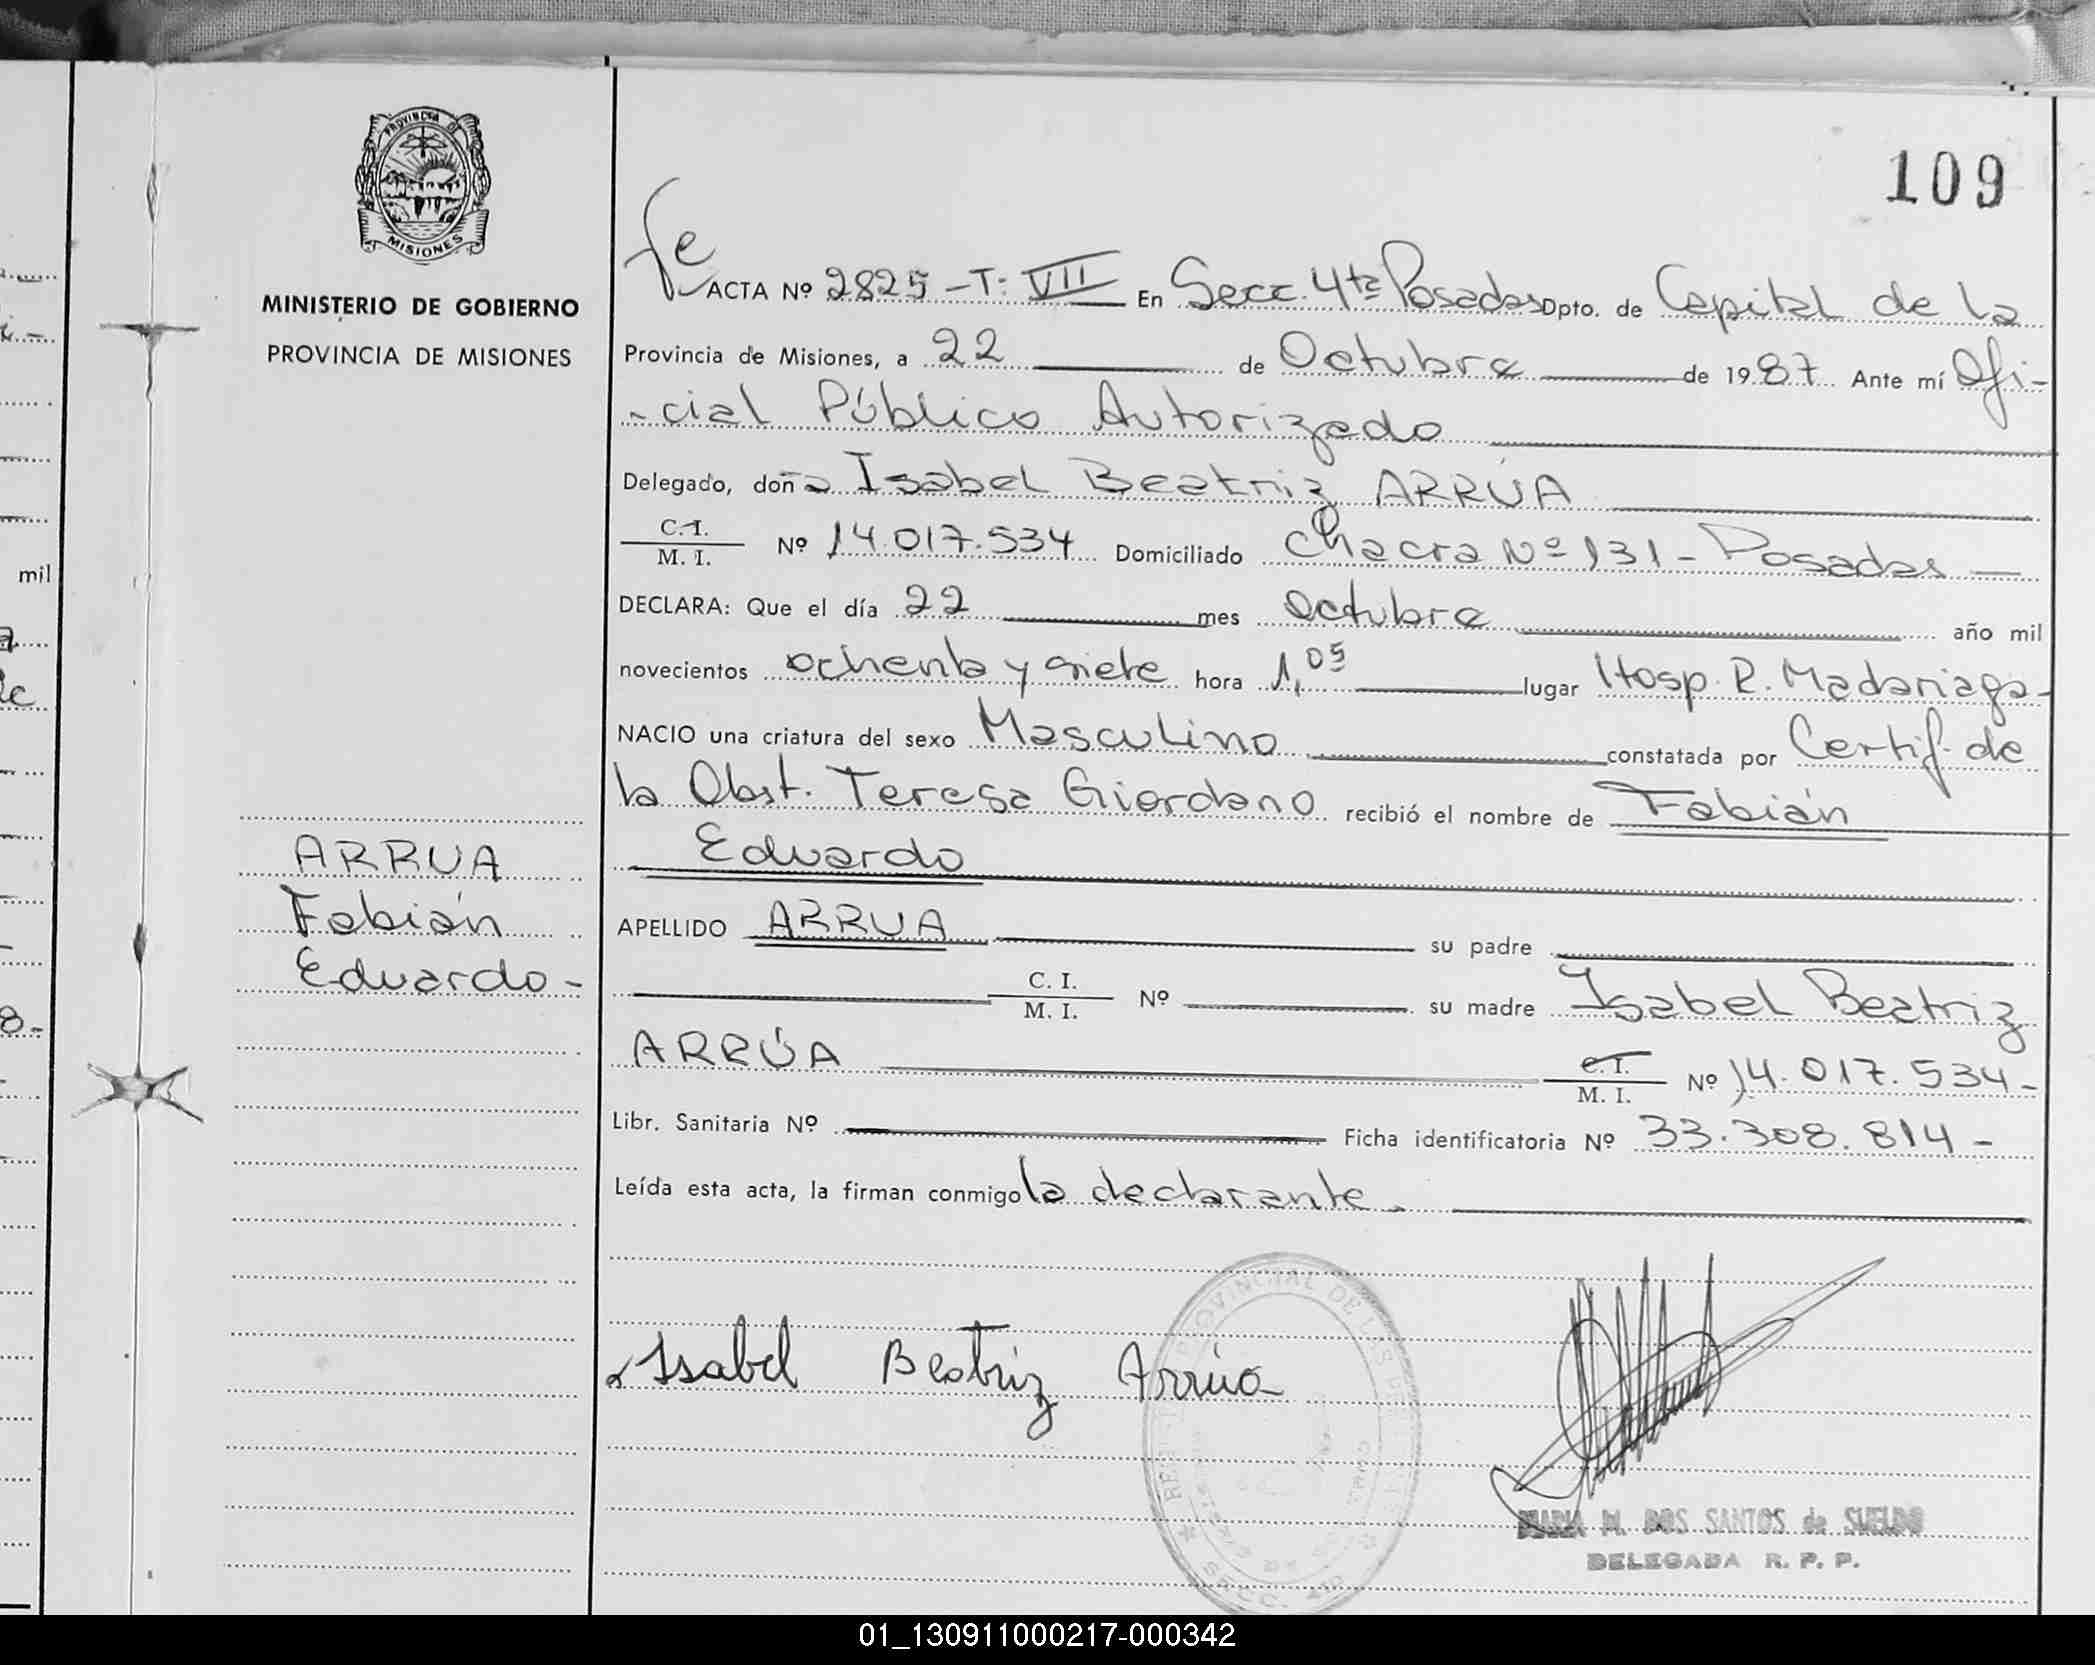 109
PROVINCIA DE
MISIONES
MINISTERIO DE GOBIERNO
PROVINCIA DE MISIONES
ARRUA
Fabián
Eduardo-
ACTA Nº 2825-T: VII En Secc. 4ta Posadas Dpto. de Capital de la
Provincia de Misiones, a 22 de Octubre de 1987 Ante mí Ofi-
-cial Público Autorizado
Delegado, doña Isabel Beatriz ARRÚA
C. I.
M. I. Nº 14.017.534 Domiciliado Chacra Nº 131 - Posadas
DECLARA: Que el día 22 mes octubre año mil
novecientos ochenta y siete hora 1,05 lugar Hosp. R. Madariaga-
NACIO una criatura del sexo Masculino constatada por Certif. de
la Obst. Teresa Giordano recibió el nombre de Fabián
Eduardo
APELLIDO ARRUA su padre
C. I.
M. I. Nº su madre Isabel Beatriz
ARRÚA C. I.
M. I. Nº 14.017.534-
Libr. Sanitaria Nº Ficha identificatoria Nº 33.308.814-
Leída esta acta, la firman conmigo la declarante.
Isabel Beatriz Arrúa
MARIA M. DOS SANTOS de SUELDO
DELEGADA R. P. P.
mil
01_130911000217-000342